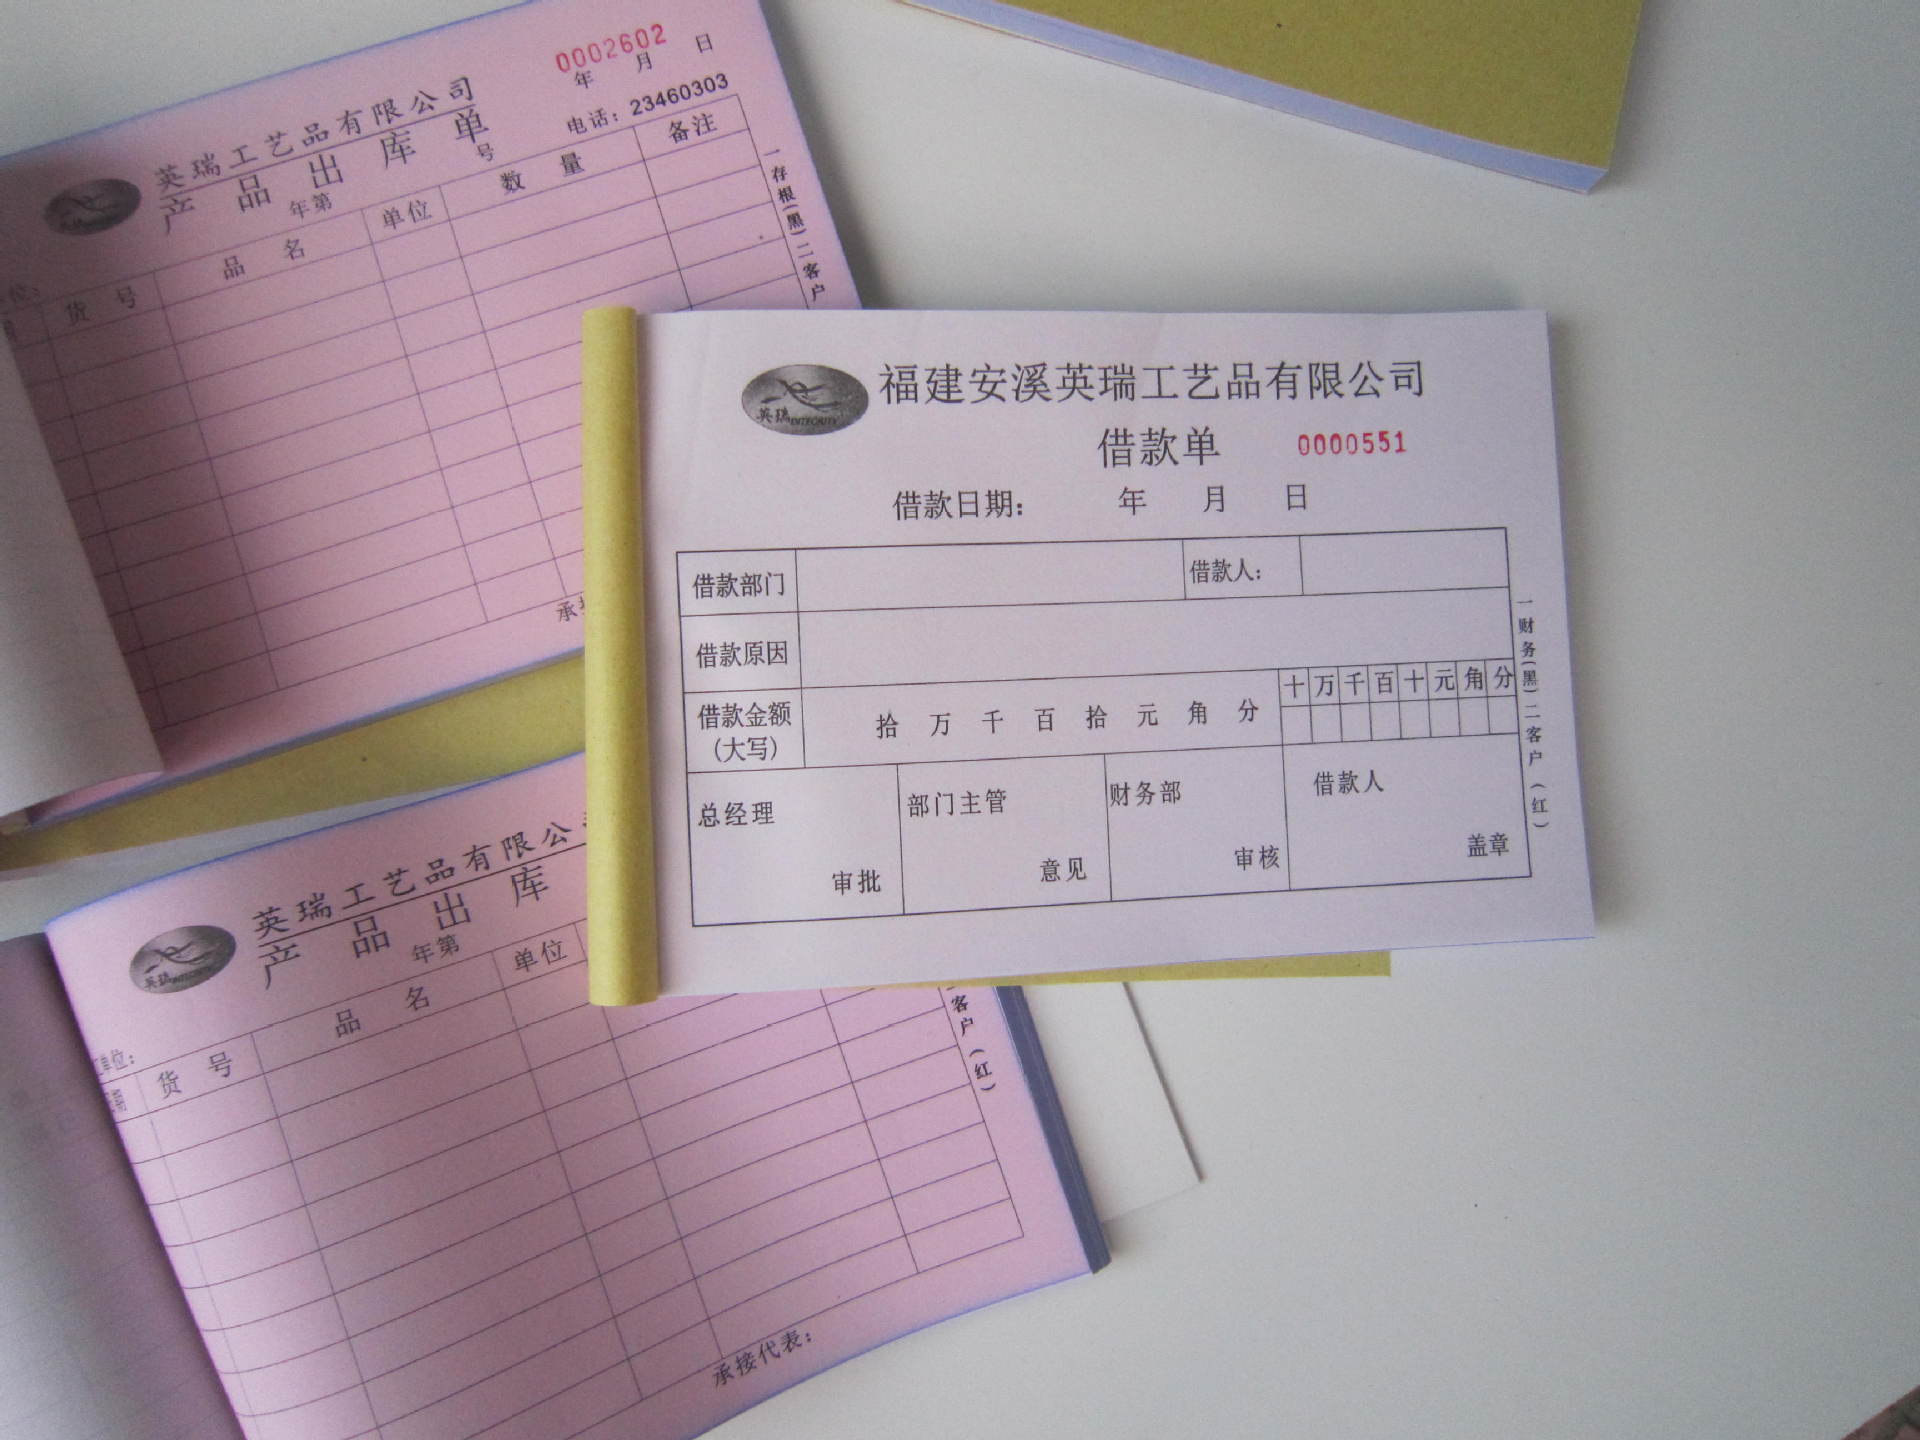 0002602
年 月 日
英瑞工艺品有限公司
产品出库单
电话：23460303
年第 号
位：
货号 品名 单位 数量 备注
一存根(黑)二客户
承
英瑞INTEGRITY
福建安溪英瑞工艺品有限公司
借款单 0000551
借款日期： 年 月 日
借款部门 借款人：
借款原因
借款金额
(大写)
拾 万 千 百 拾 元 角 分
十 万 千 百 十 元 角 分
总经理 部门主管 财务部 借款人
审批 意见 审核 盖章
一财务(黑)二客户(红)
英瑞INTEGRITY
英瑞工艺品有限公
产品出库
年第
单位：
货号 品名 单位
客户(红)
承接代表：